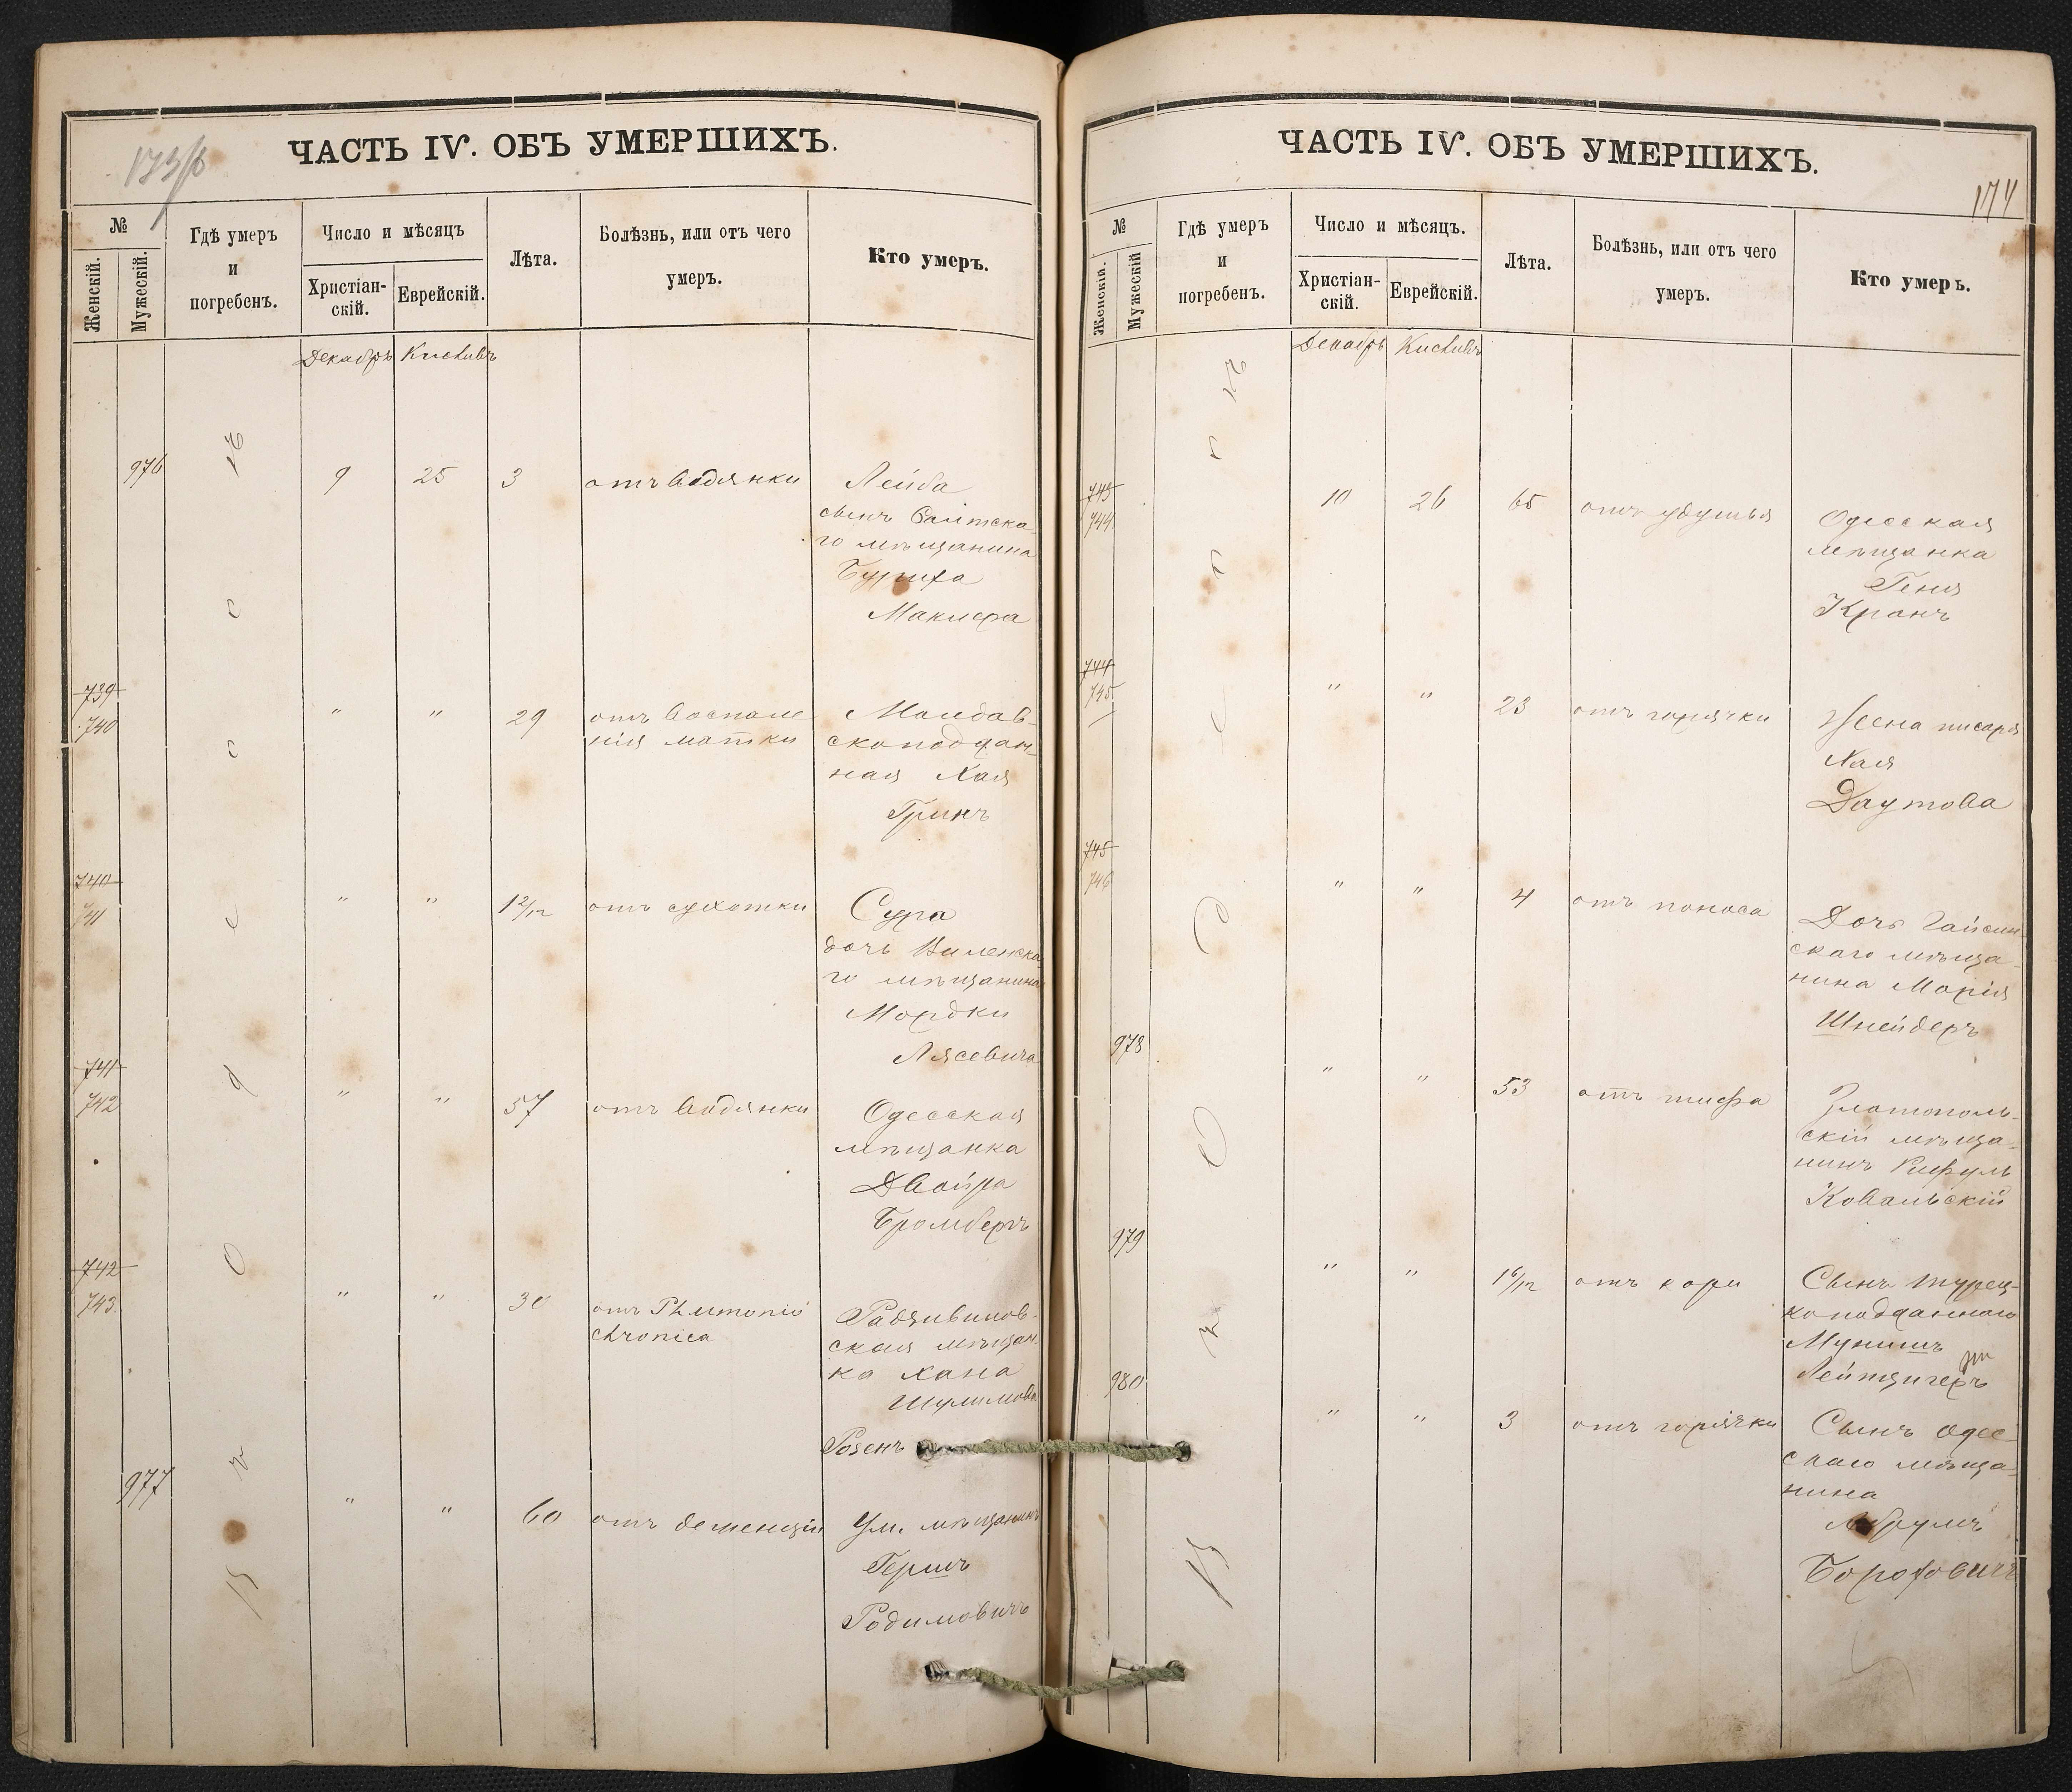 173/б
ЧАСТЬ IV. ОБЪ УМЕРШИХЪ.
№
Женскій.
Мужескій.
Гдѣ умеръ
и
погребенъ.
Число и мѣсяцъ
Христіан-
скій.
Еврейскій.
Лѣта.
Болѣзнь, или отъ чего
умеръ.
Кто умеръ.
Декабрь Кисливъ
976 9 25 3 отъ водянки Лейба
сынъ Балтска-
го мѣщанина
Буриха
Маклера
739
740 " " 29 отъ воспале Молдав-
нія матки скоподдан-
ная Хая
Гринъ
740
741 " " 1 2/12 отъ сухотки Сура
дочь Виленска
го мѣщанина
Мордки
Лясевича
741
742 " " 57 отъ водянки Одесская
мѣщанка
Двойра
Бромбергъ
742
743 " " 30 отъ
chronica
Радзивилов-
ская мѣщан-
ка Хана
Шулимова
Розенъ
977 " " 60 отъ деменціи Ум. мѣщанинъ
Гершъ
Родимовичъ
въ г. Одессѣ
ЧАСТЬ IV. ОБЪ УМЕРШИХЪ.
174
№
Женскій.
Мужескій
Гдѣ умеръ
и
погребенъ.
Число и мѣсяцъ.
Христіан-
скій.
Еврейскій.
Лѣта.
Болѣзнь, или отъ чего
умеръ.
Кто умеръ.
Декабрь Кисливъ
743
744 10 26 65 отъ удушья Одесская
мѣщанка
Геня
Кранъ
744
745 " " 23 отъ горячки Жена писаря
Хая
Даутова
745
746 " " 4 отъ поноса Дочь Гайсин-
скаго мѣща-
нина Марія
Шнейдеръ
978 " " 53 отъ тифа Златополь-
скій мѣща-
нинъ Рифулъ
Ковальскій
979 " " 1 6/12 отъ кори Сынъ турец-
коподданнаго
Мунишъ
Лейтцигеръ
980 " " 3 отъ горячки Сынъ Одес-
скаго мѣща-
нина
Абрумъ
Бороховичъ
въ г. Одессѣ